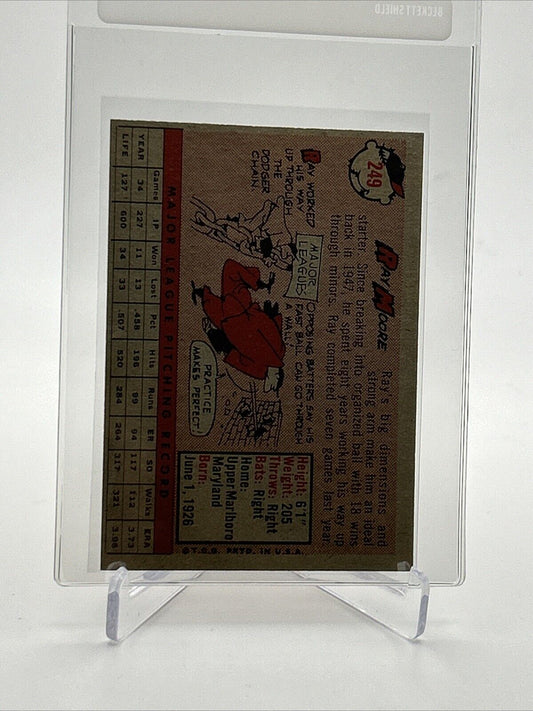 BECKETT SHIELD
249
RAY MOORE
Ray's big dimensions and
strong arm make him an ideal
starter. Since breaking into organized ball with 18 wins
back in 1947, he spent eight years working his way up
through minors. Ray completed seven games last year.
RAY WORKED
HIS WAY
UP THROUGH
THE
DODGER
CHAIN.
MAJOR
LEAGUES
OPPOSING BATTERS SAY HIS
FAST BALL CAN GO THROUGH
A WALL!
PRACTICE
MAKES PERFECT
Height: 6'1"
Weight: 205
Throws: Right
Bats: Right
Home:
Upper Marlboro
Maryland
Born:
June 1, 1926
MAJOR LEAGUE PITCHING RECORD
Games IP Won Lost Pct Hits Runs ER SO Walks ERA
YEAR 34 227 11 13 .458 196 99 94 117 112 3.73
LIFE 127 600 34 33 .507 520 284 264 317 321 3.96
© T.C.G. PRTD. IN U.S.A.